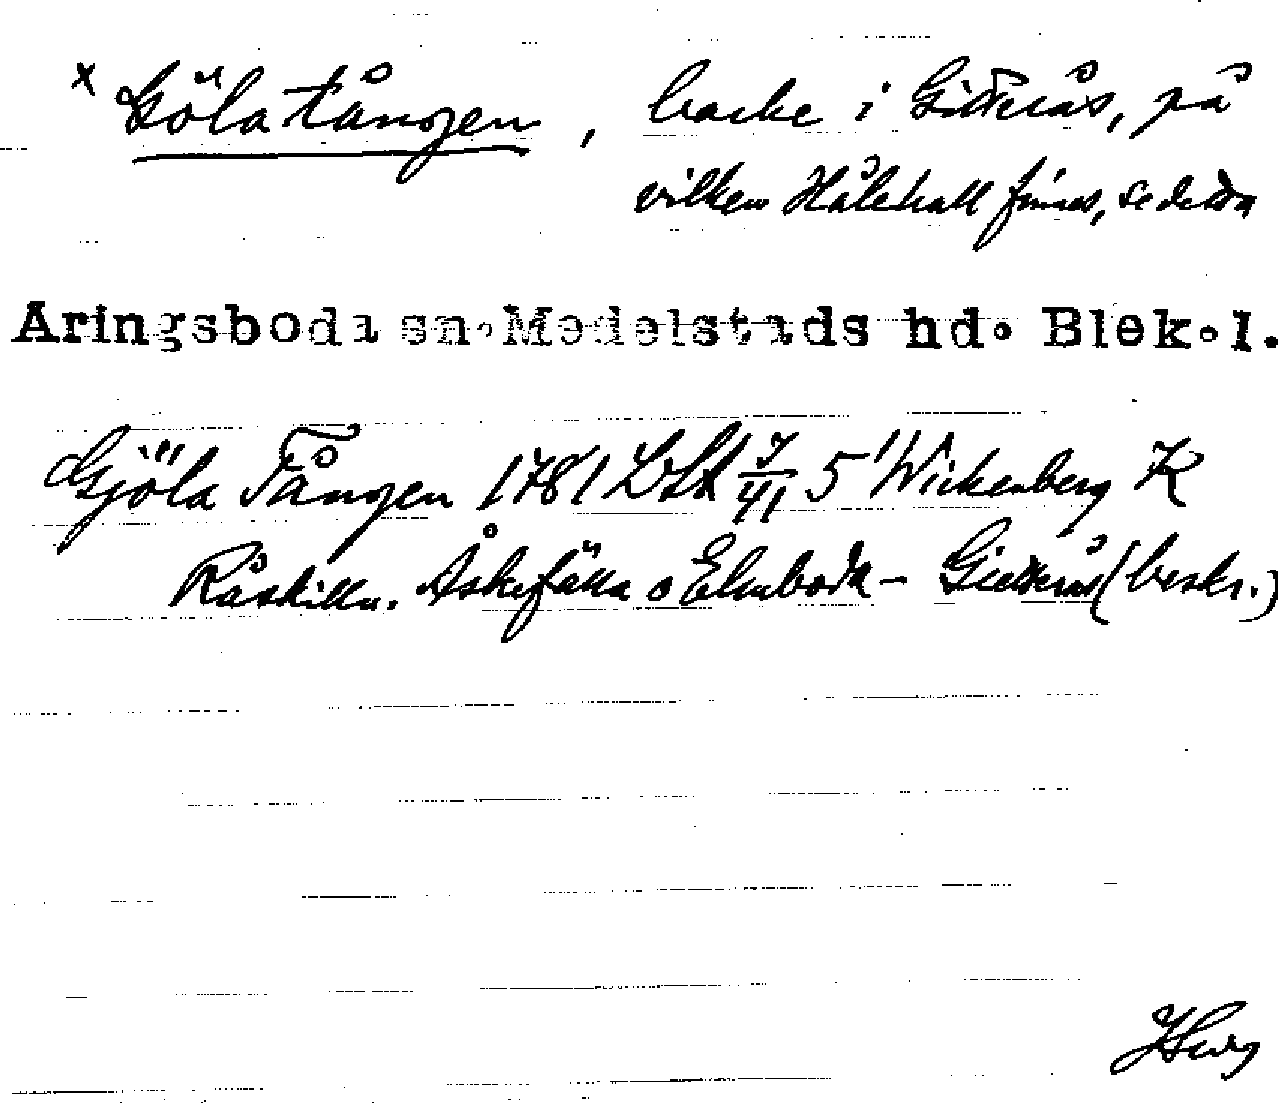 x Göla tången, backe i Giderås, på
vilken Hålehall finns, se detta
Aringsboda sn. Medelstads hd. Blek.l.
Gjöla Tången 1781 LSA 7/41 5 Wickenberg K
Råskilln. Åskefälla o Elmboda – Giderås (beskr.)